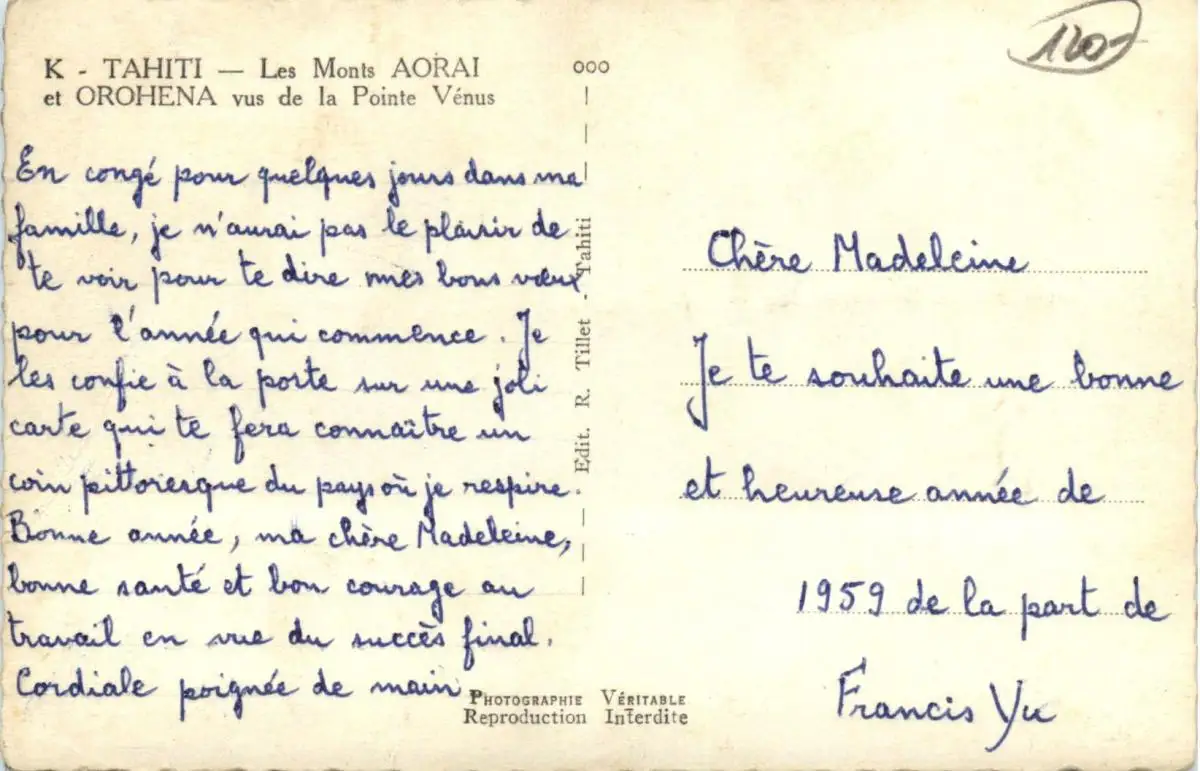 K - TAHITI — Les Monts AORAI
et OROHENA vus de la Pointe Vénus
En congé pour quelques jours dans ma
famille, je n'aurai pas le plaisir de
te voir pour te dire mes bons vœux
pour l'année qui commence. Je
les confie à la porte sur une joli
carte qui te fera connaître un
coin pittoresque du pays où je respire.
Bonne année, ma chère Madeleine,
bonne santé et bon courage au
travail en vue du succès final.
Cordiale poignée de main
ooo
Edit. R. Tillet - Tahiti
PHOTOGRAPHIE VÉRITABLE
Reproduction Interdite
Chère Madeleine
Je te souhaite une bonne
et heureuse année de
1959 de la part de
Francis Yu